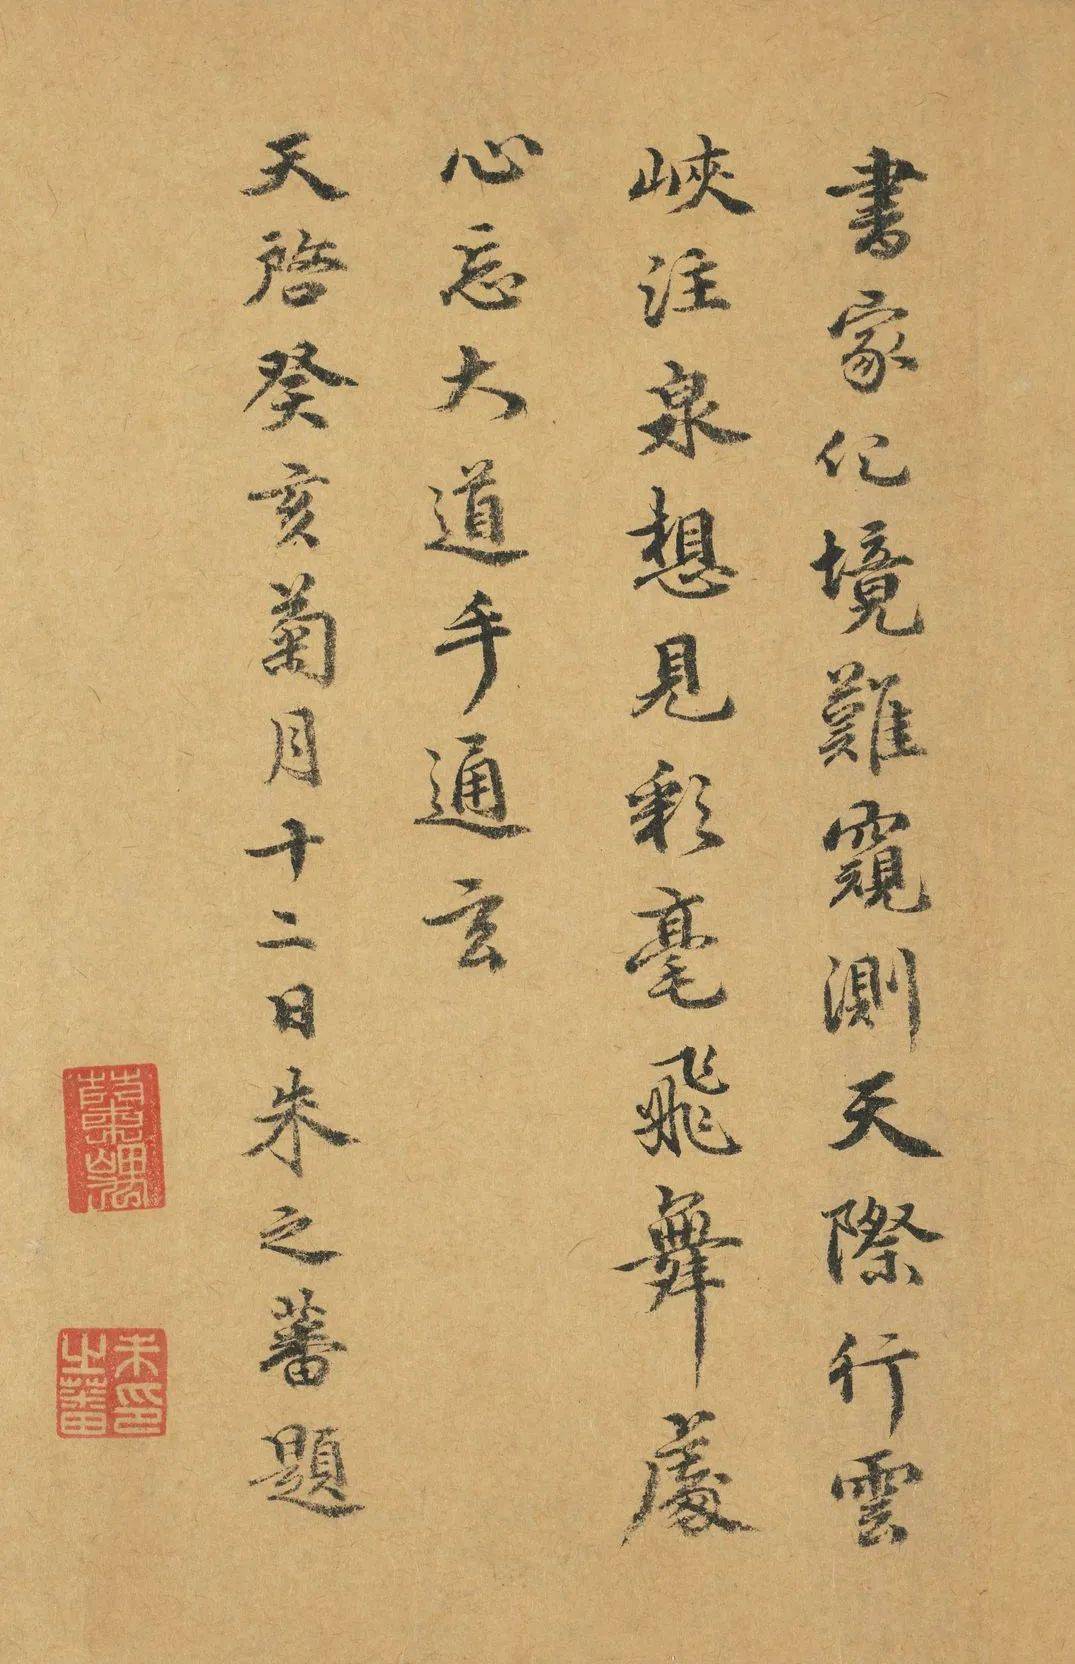 書家化境難窺測天際行雲
峽注泉想見彩毫飛舞處
心忘大道手通玄
天啓癸亥菊月十二日朱之蕃題
朱印之蕃